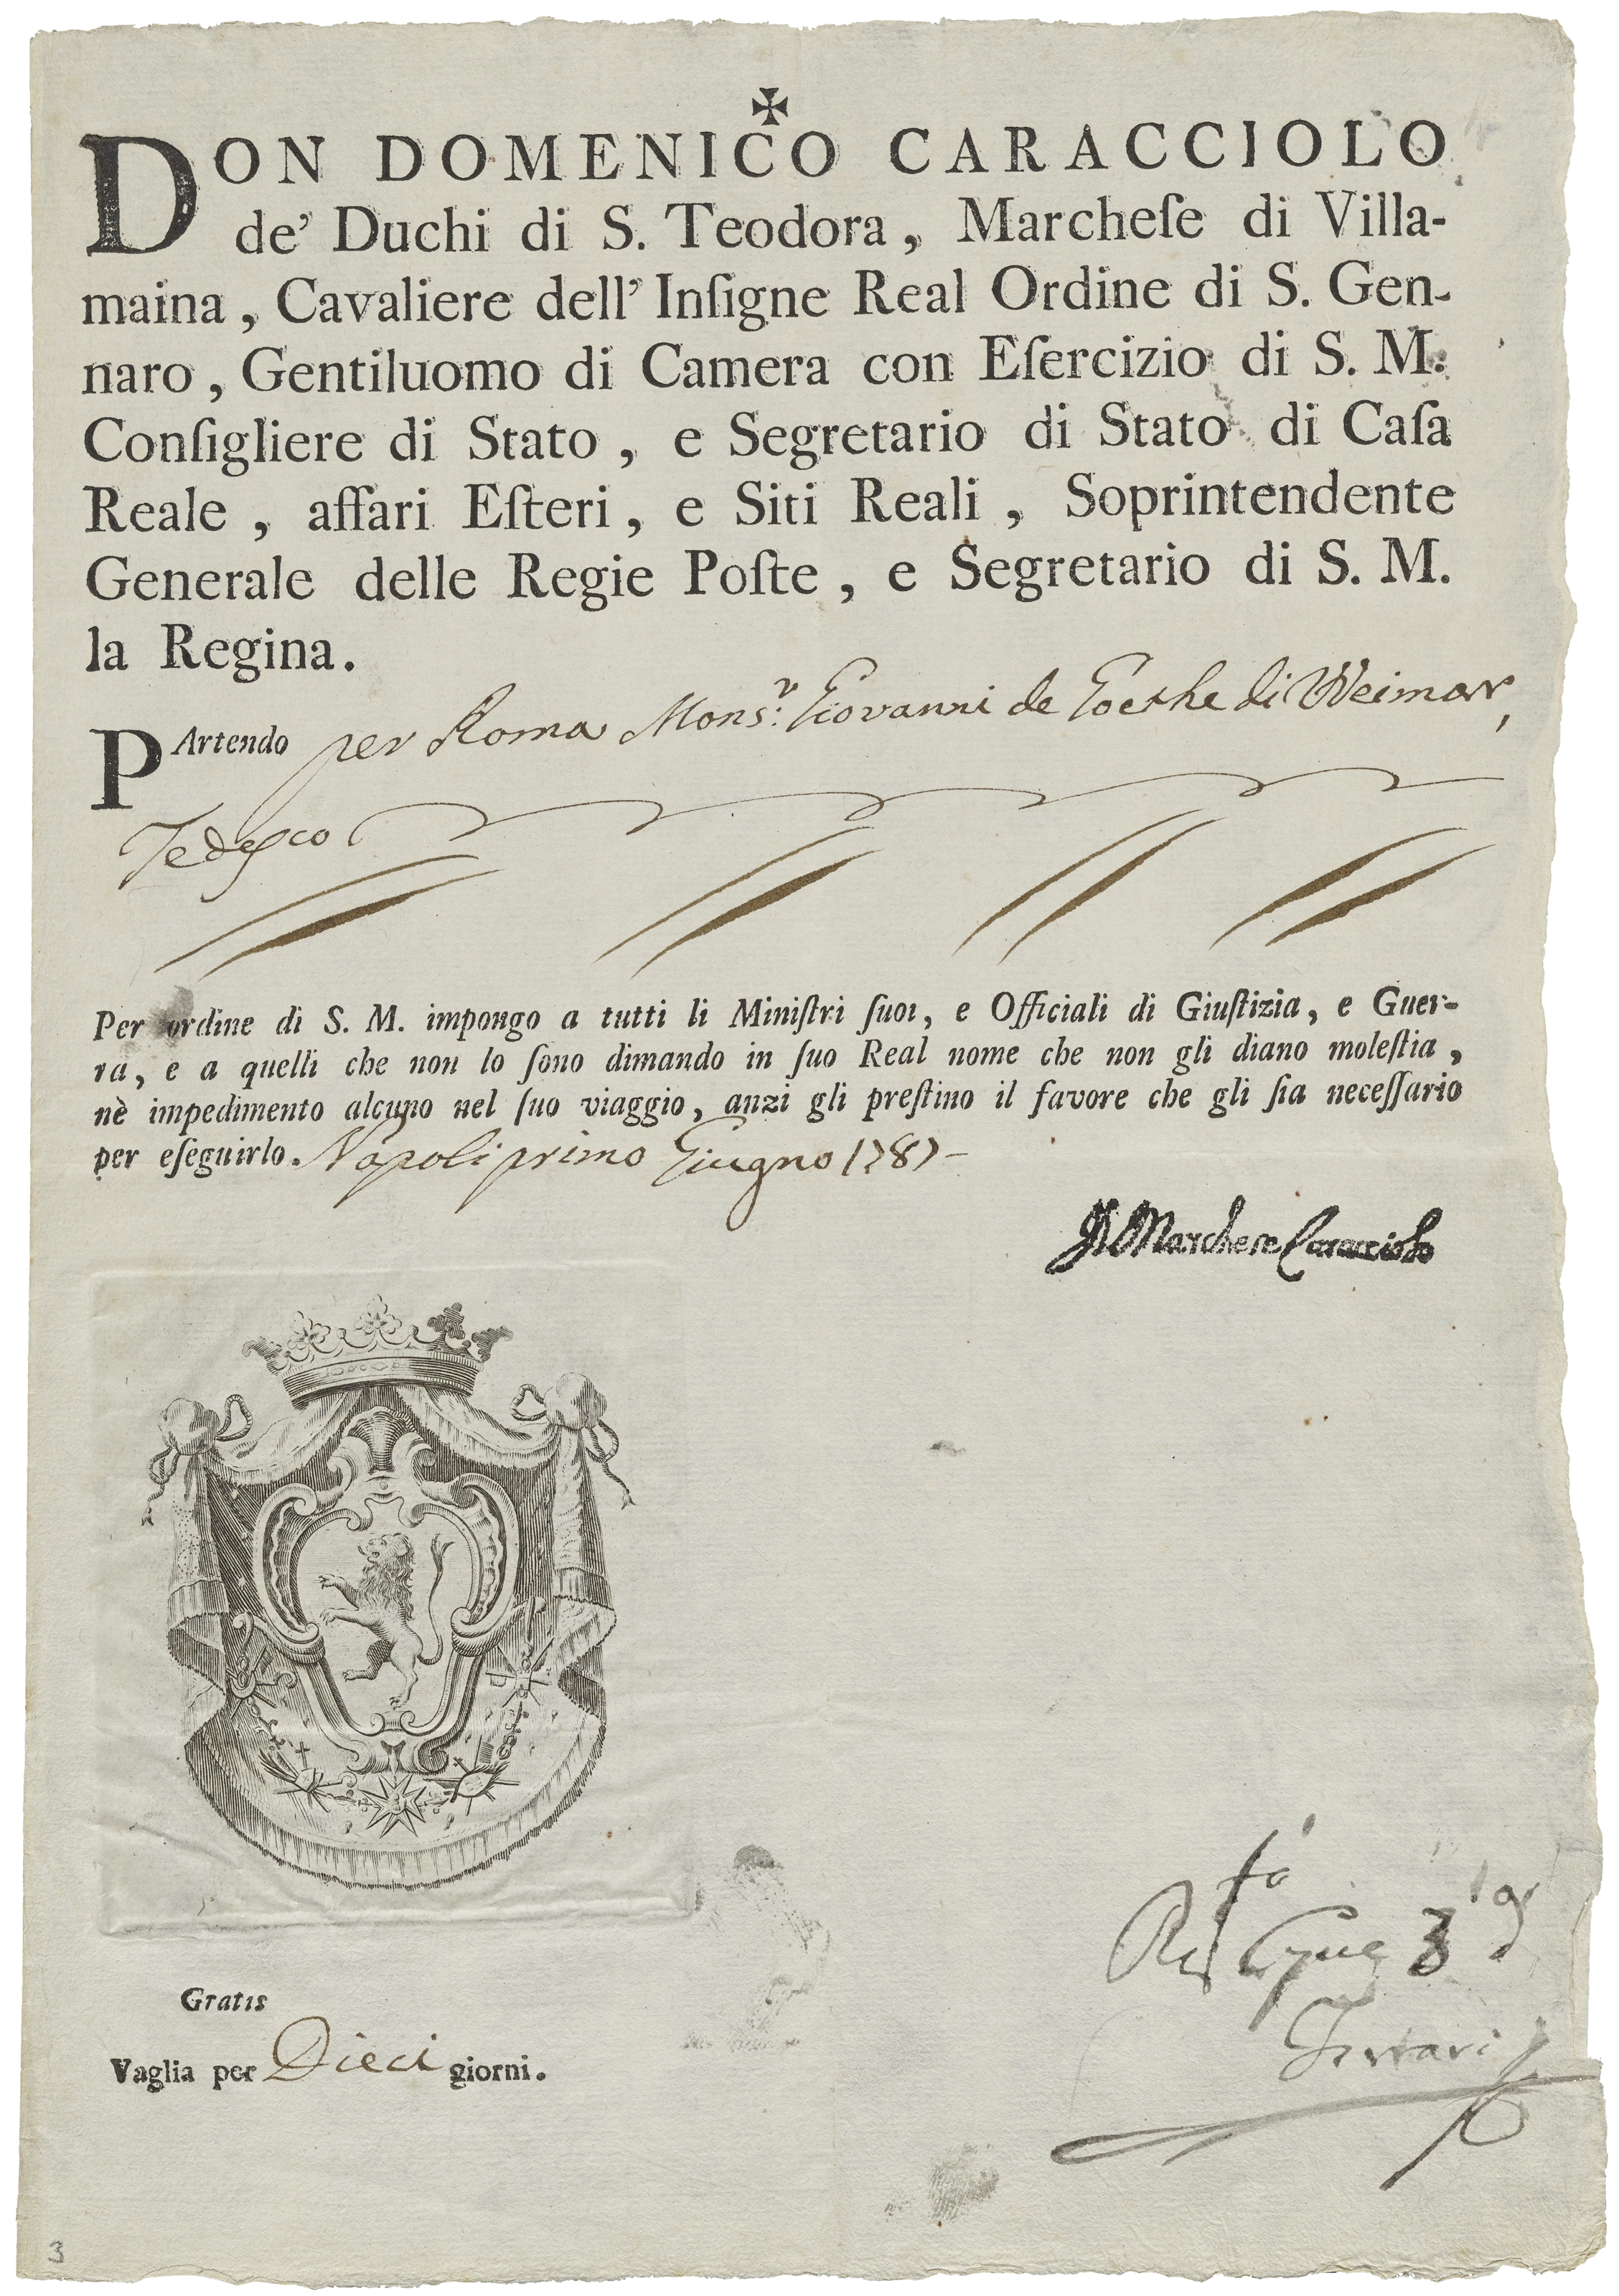 DON DOMENICO CARACCIOLO
de' Duchi di S. Teodora, Marcheſe di Villa-
maina, Cavaliere dell' Inſigne Real Ordine di S. Gen-
naro, Gentiluomo di Camera con Eſercizio di S. M.
Conſigliere di Stato, e Segretario di Stato di Caſa
Reale, affari Eſteri, e Siti Reali, Soprintendente
Generale delle Regie Poſte, e Segretario di S. M.
la Regina.
PArtendo per Roma Mons.r Giovanni de Goethe di Weimar,
Tedesco
Per ordine di S. M. impongo a tutti li Miniſtri ſuoi, e Officiali di Giuſtizia, e Guer-
ra, e a quelli che non lo ſono dimando in ſuo Real nome che non gli diano moleſtia,
nè impedimento alcuno nel ſuo viaggio, anzi gli preſtino il favore che gli ſia neceſſario
per eſeguirlo. Napoli primo Giugno 1787
Il Marchese Caracciolo
Gratis
Vaglia per Dieci giorni.
3